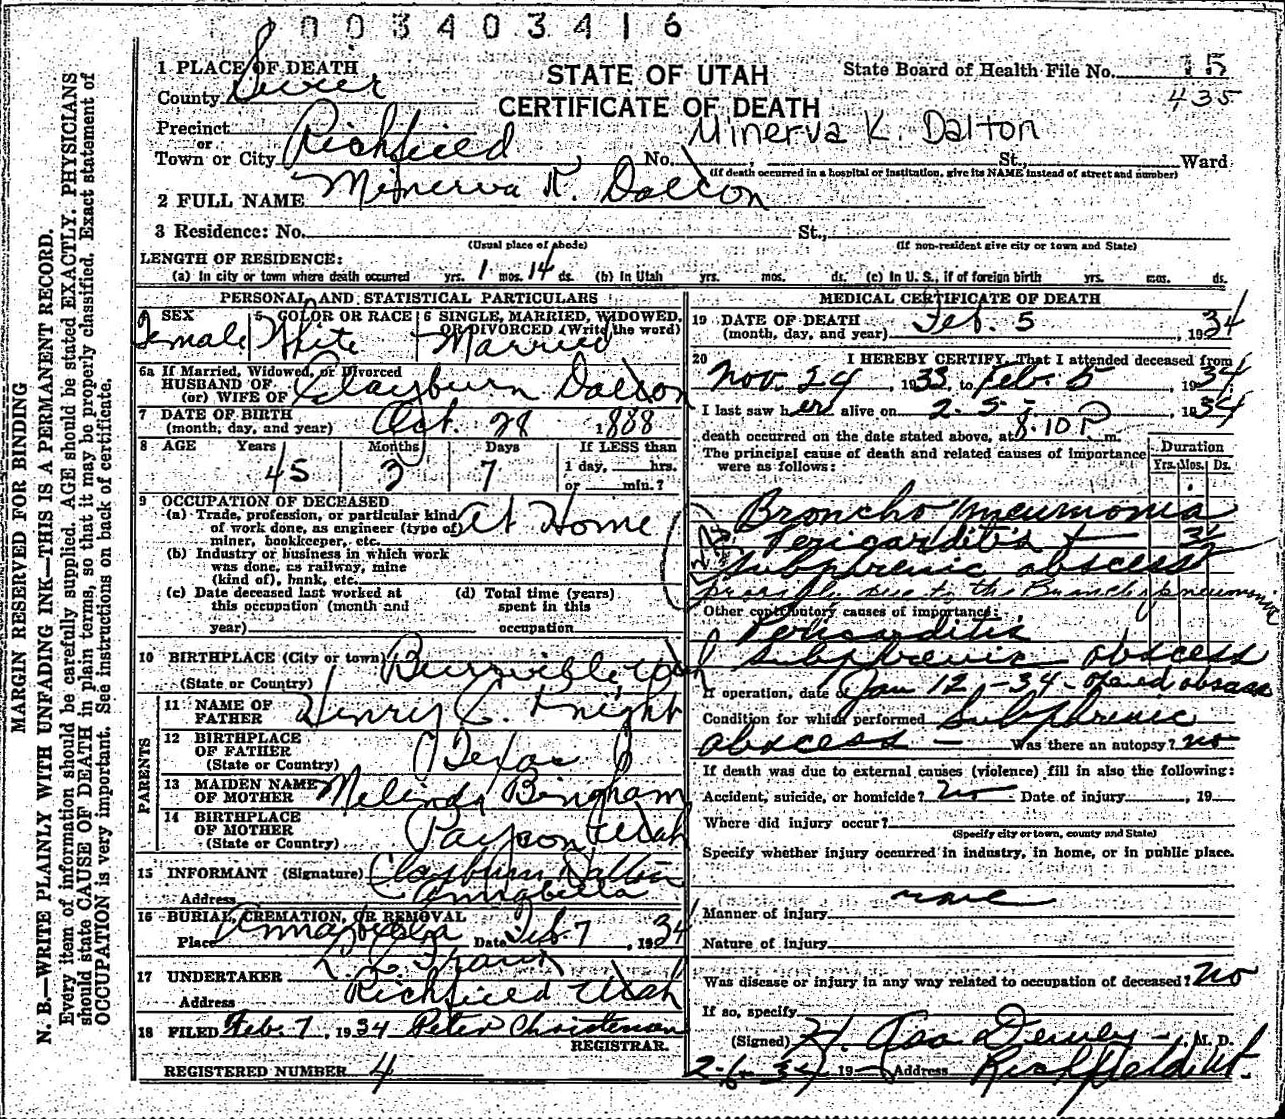 003403416
1 PLACE OF DEATH
STATE OF UTAH
State Board of Health File No. 15
County Sevier
CERTIFICATE OF DEATH
435
Precinct
or
Minerva K. Dalton
Town or City Richfield, No. , St., Ward
(If death occurred in a hospital or institution, give its NAME instead of street and number)
2 FULL NAME Minerva K. Dalton
3 Residence: No. St.,
(Usual place of abode) (If non-resident give city or town and State)
LENGTH OF RESIDENCE:
(a) In city or town where death occurred yrs. 1 mos. 14 ds. (b) In Utah yrs. mos. ds. (c) In U. S., if of foreign birth yrs. mos. ds.
PERSONAL AND STATISTICAL PARTICULARS
SEX 5 COLOR OR RACE 6 SINGLE, MARRIED, WIDOWED,
OR DIVORCED (Write the word)
Female White Married
6a If Married, Widowed, or Divorced
HUSBAND OF
(or) WIFE OF Clayburn Dalton
7 DATE OF BIRTH
(month, day, and year) Oct. 28 1888
8 AGE Years Months Days If LESS than
45 3 7 1 day, hrs.
or min.?
9 OCCUPATION OF DECEASED
(a) Trade, profession, or particular kind
of work done, as engineer (type of) At Home
miner, bookkeeper, etc.
(b) Industry or business in which work
was done, as railway, mine
(kind of), bank, etc.
(c) Date deceased last worked at (d) Total time (years)
this occupation (month and spent in this
year) occupation
10 BIRTHPLACE (City or town) Burrville, Utah
(State or Country)
PARENTS
11 NAME OF
FATHER Henry C. Knight
12 BIRTHPLACE
OF FATHER Texas
(State or Country)
13 MAIDEN NAME
OF MOTHER Melinda Bingham
14 BIRTHPLACE
OF MOTHER Payson Utah
(State or Country)
15 INFORMANT (Signature) Clayburn Dalton
Address Annabella
16 BURIAL, CREMATION, OR REMOVAL
Place Annabella Date Feb. 7, 1934
17 UNDERTAKER
Address Richfield Utah
18 FILED Feb. 7, 1934 Peter Christensen
REGISTRAR.
REGISTERED NUMBER 4
MEDICAL CERTIFICATE OF DEATH
19 DATE OF DEATH
(month, day, and year) Feb. 5, 1934
20 I HEREBY CERTIFY, That I attended deceased from
Nov. 24, 1933, to Feb. 5, 1934
I last saw her alive on 2-5-, 1934
death occurred on the date stated above, at 8.10 P m.
The principal cause of death and related causes of importance
were as follows:
Duration
Yrs. Mos. Ds.
Broncho pneumonia
Pericarditis +
Subphrenic abscess
possibly due to the Bronchopneumonia
Other contributory causes of importance:
Pericarditis
Subphrenic abscess
If operation, date of Jan 12-34- opened abscess
Condition for which performed Subphrenic
abscess - Was there an autopsy? no
If death was due to external causes (violence) fill in also the following:
Accident, suicide, or homicide? no Date of injury , 19
Where did injury occur?
(Specify city or town, county and State)
Specify whether injury occurred in industry, in home, or in public place.
none
Manner of injury
Nature of injury
Was disease or injury in any way related to occupation of deceased? no
If so, specify
(Signed) Dewey , M. D.
2-6-34 19 Address Richfield Ut.
MARGIN RESERVED FOR BINDING
N. B.—WRITE PLAINLY WITH UNFADING INK—THIS IS A PERMANENT RECORD.
Every item of information should be carefully supplied. AGE should be stated EXACTLY. PHYSICIANS
should state CAUSE OF DEATH in plain terms, so that it may be properly classified. Exact statement of
OCCUPATION is very important. See instructions on back of certificate.